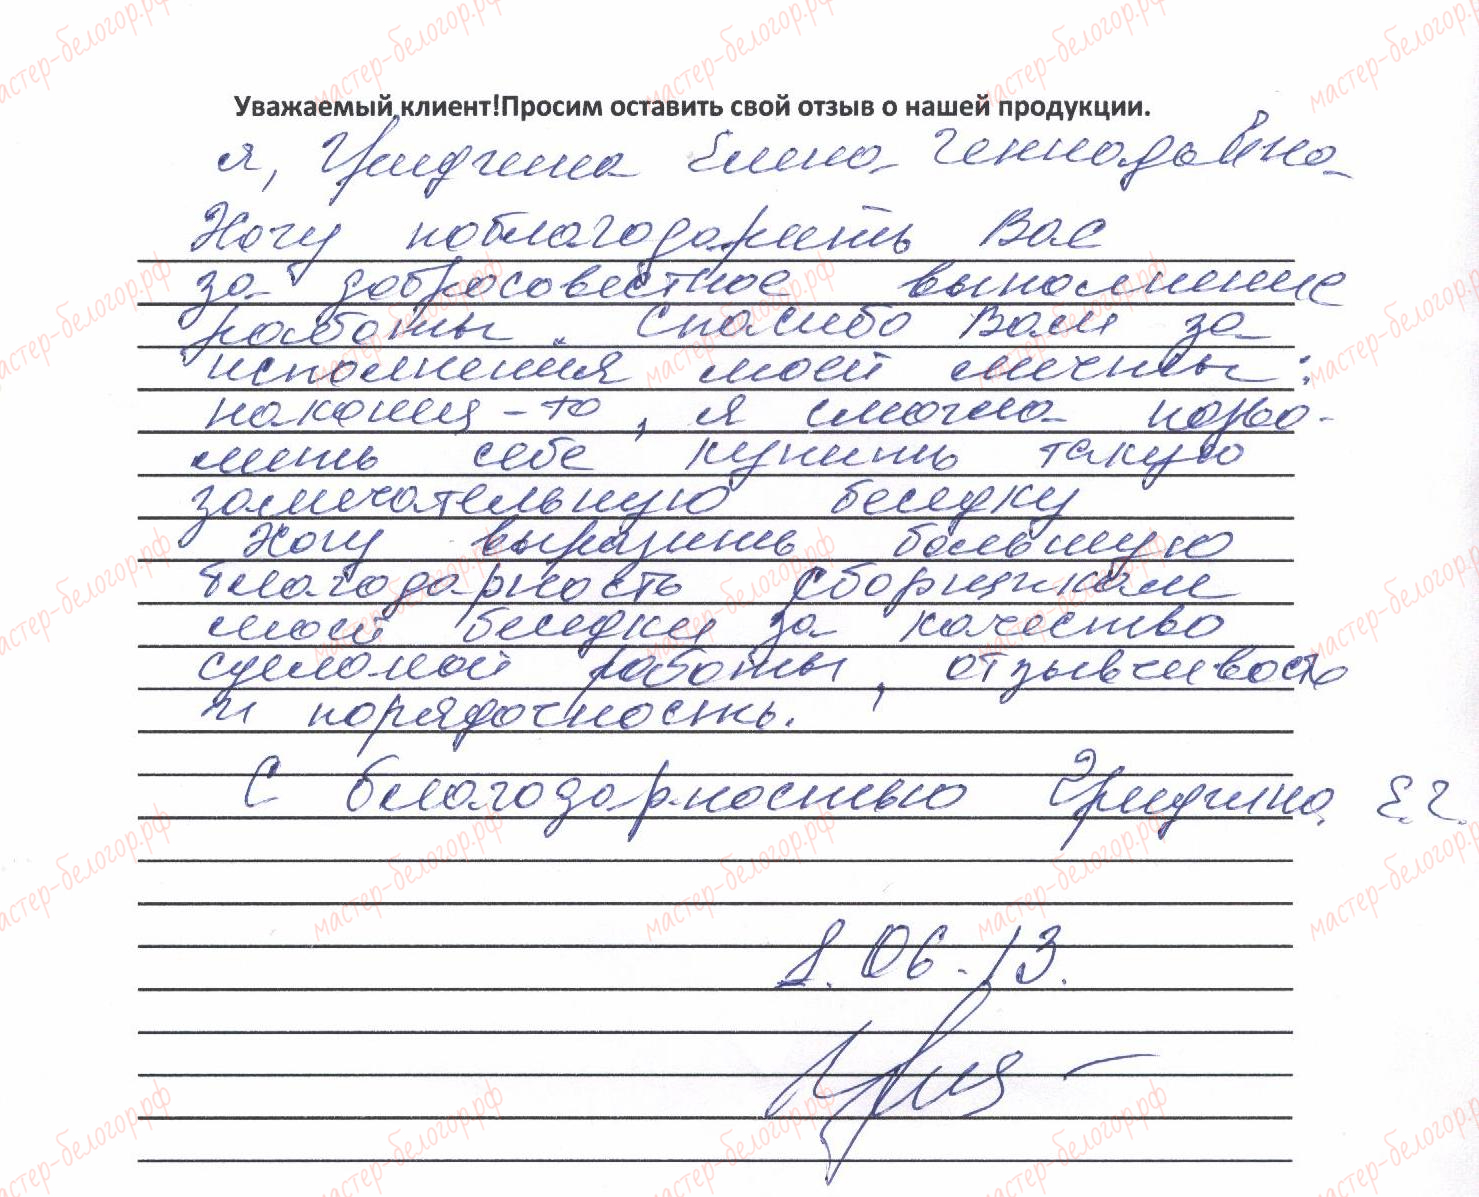 Уважаемый клиент!Просим оставить свой отзыв о нашей продукции.
я, Гридчина Елена Геннадьевна
Хочу поблагодарить Вас
за добросовестное выполнение
работы. Спасибо Вам за
исполнения моей мечты:
наконец-то, я смогла позво-
лить себе купить такую
замечательную беседку
Хочу выразить большую
благодарность сборщикам
моей беседки за качество
сделаной работы, отзывчивость
и порядочность.
С благодарностью Гридчина Е.Г.
8.06.13.
мастер-белогор.рф